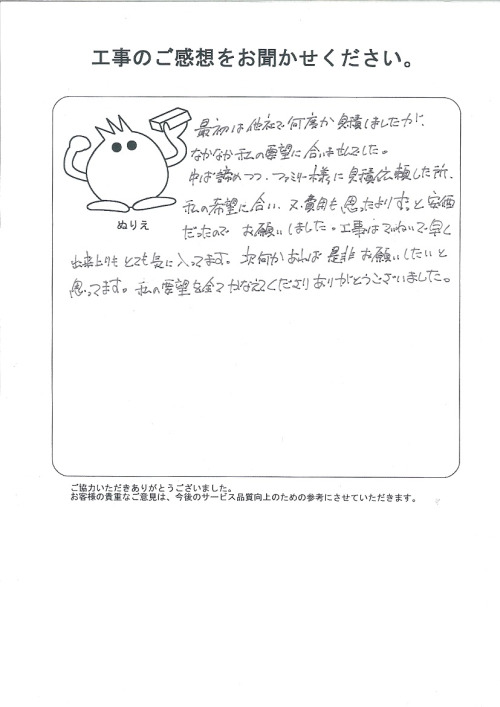 工事のご感想をお聞かせください。
最初は他社で何度か見積しましたが、
なかなか私の要望に合いませんでした。
半ば諦めつつ、ファミリー様に見積依頼した所、
私の希望に合い、又、費用も思ったよりずっと安価
だったので お願いしました。工事はていねいで早く
ぬりえ
出来上りも とても気に入ってます。次何かあれば 是非 お願いしたいと
思ってます。私の要望を全てかなえてくださりありがとうございました。
ご協力いただきありがとうございました。
お客様の貴重なご意見は、今後のサービス品質向上のための参考にさせていただきます。